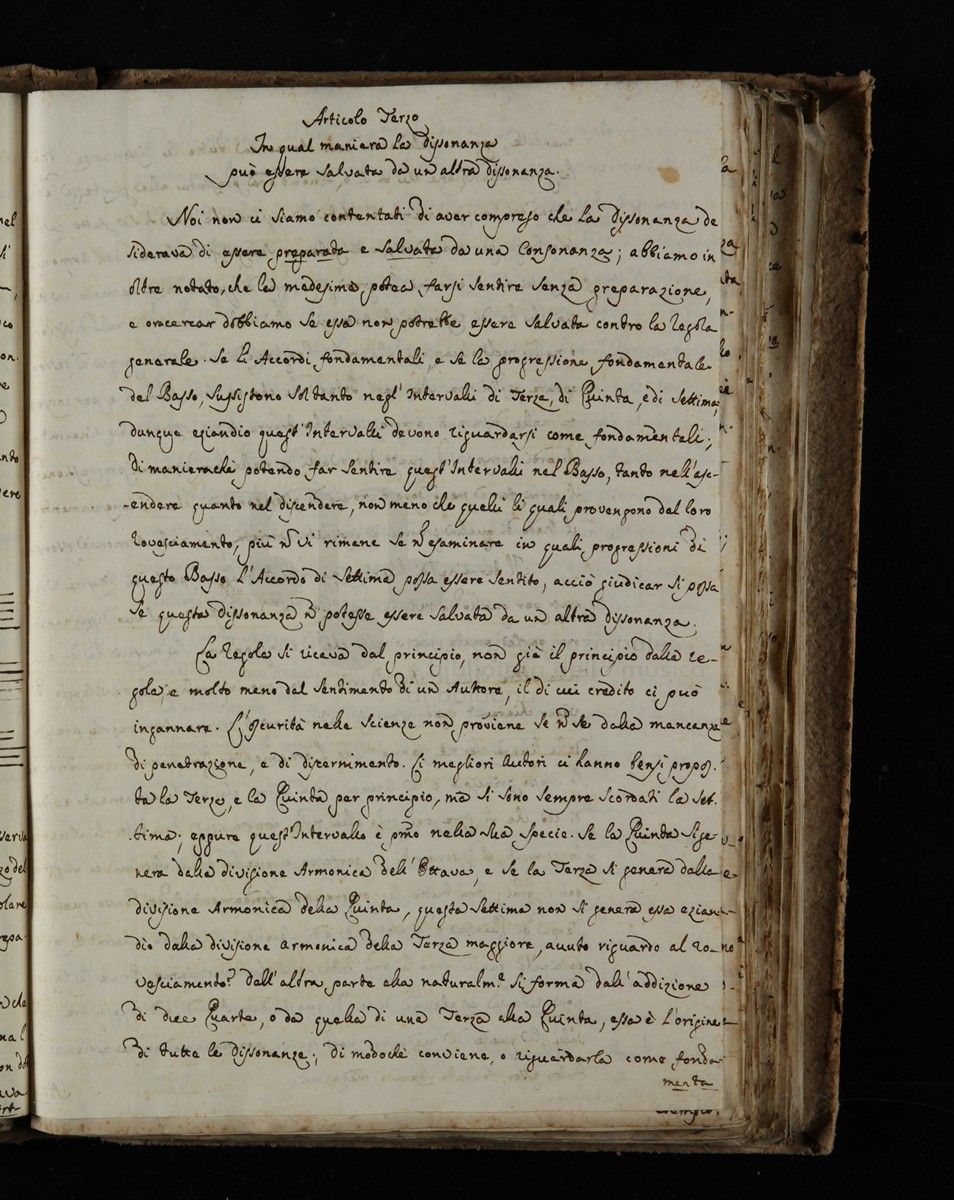 Articolo Terzo
In qual maniera la dissonanza
può essere salvata da un'altra dissonanza.
Noi non ci siamo contentati di aver compreso che la dissonanza de
siderava di essere preparata e salvata da una Consonanza; abbiamo in
oltre notato, che la medesima potea farsi sentire senza preparazione,
e or cercar dobbiamo se essa non potrebbe essere salvata contro la regola
generale. Se li Accordi fondamentali, e se la progressione fondamentale
del Basso, sussistono soltanto negl'Intervalli di Terza, di Quinta, e di Settima,
dunque eziandio quest'Intervalli devono riguardarsi come fondamentali;
di manieracchè potendo far sentire quest'Intervalli nel Basso, tanto nell'asc-
-endere quanto nel discendere, non meno che quelli li quali provengono dal loro
rovesciamento, più ñ vi rimane se ñ esaminare in quali progressioni di
questo Basso l'Accordo di Settima possa essere sentito, acciò giudicar si possa
se questa dissonanza ñ potesse essere salvata da un altra dissonanza.
La regola si riceva dal principio, non già il principio dalla re-
gola, e molto meno dal sentimento di un Auttore, il di cui credito ci può
ingannare. L'oscurità nelle scienze non proviene se ñ se dalla mancanza
di penetrazione, e di discernimento. Li megliori Autori ci hanno bensì propos.
ta la Terza, e la Quinta per principio, ma si sono sempre scordati la Set.
tima; eppure quest'Intervallo è pmo nella sua specie. Se la Quinta si ge-
nera dalla divisione Armonica dell'Ottava, e se la Terza si genera dalla
divisione Armonica della Quinta, questa Settima non si genera essa ezian-
dio dalla divisione armonica della Terza maggiore, avuto riguardo al ro-
vesciamento? Dall'altra parte ella naturalm.e si forma dall'addizione
di due Quarte, o da quella di una Terza alla Quinta, essa è l'origine
di tutte le dissonanze; di modochè conviene, o riguardarla come fonda-
menta